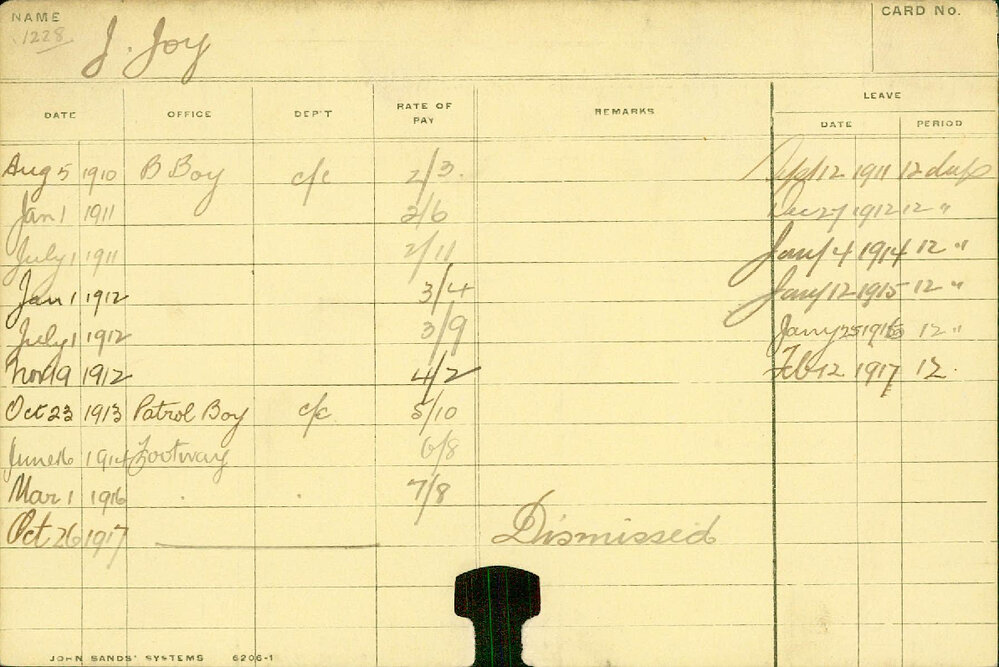 NAME
1228
J. Joy
CARD No.
DATE OFFICE DEP'T RATE OF PAY REMARKS LEAVE
DATE PERIOD
Aug 5 1910 B Boy c/c 2/3. 12 1911 12 days
Jan 1 1911 2/6 Dec 27 1912 12 "
July 1 1911 2/11 Jany 4 1914 12 "
Jan 1 1912 3/4 Jany 12 1915 12 "
July 1 1912 3/9 Jany 25 1916 12 "
Nov 19 1912 4/2 Feb 12 1917 12.
Oct 23 1913 Patrol Boy c/c 5/10
June 16 1914 Footway 6/8
Mar 1 1916 . . 7/8
Oct 26 1917 Dismissed
JOHN SANDS' SYSTEMS 6206-1